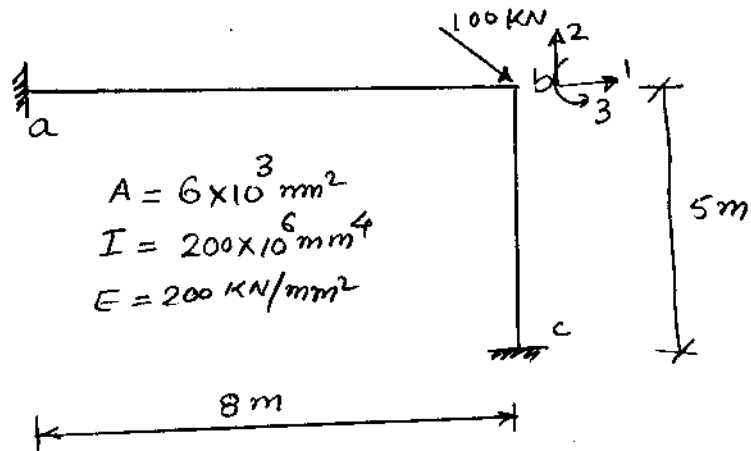 100 KN
2
b
1
3
a
A = 6×10³ mm²
I = 200×10⁶ mm⁴
E = 200 KN/mm²
5m
c
8 m